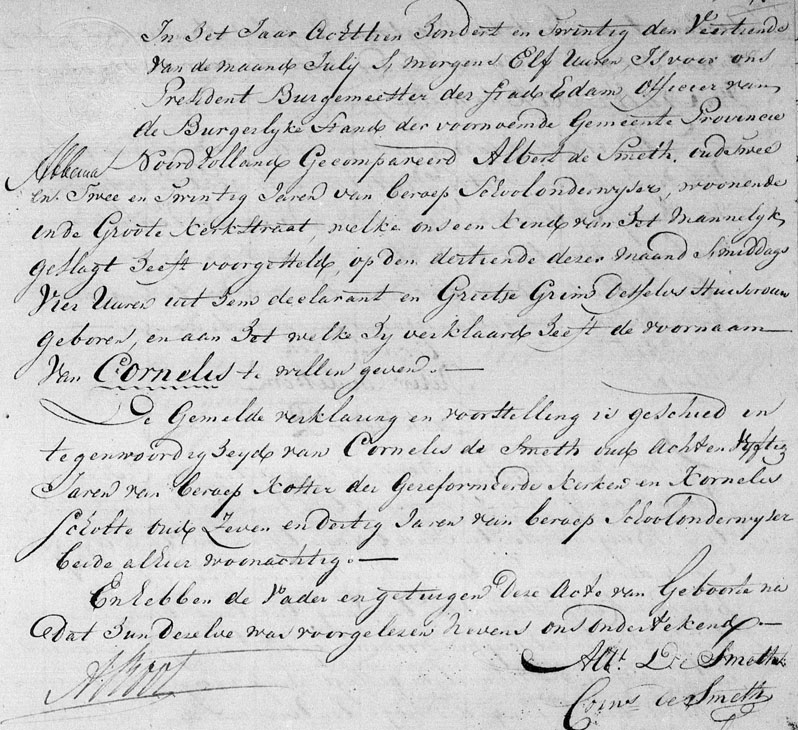 In Het Jaar Achthien Hondert en Twintig den Veertiende
van de maand July S morgens Elf Uuren Is voor ons
President Burgemeester der stad Edam, Officier van
de Burgerlyke Stand der voornoemde Gemeente Provincie
Noordholland Gecompareerd Albert de Smeth, oud Twee
en Twee en Twintig Jaren van beroep Schoolonderwyser, woonende
in de Groote Kerkstraat, welke ons een Kind van Het Mannelyk
geslagt Heeft voorgesteld, op den dertiende dezer maand S middags
Vier Uuren uit Hem declarant en Grietje Grim Deszelvs Huisvrouw
geboren, en aan Het welke Hy verklaard Heeft de voornaam
Van Cornelis te willen geven.
De Gemelde verklaring en voorstelling is geschied in
tegenwoordigheyd van Cornelis de Smeth oud Acht en Vyftig
Jaren van beroep Koster der Gereformeerde Kerken en Kornelis
Schotte oud Zeven en dertig Jaren van beroep Schoolonderwyser
beide alhier woonachtig.
En hebben de Vader en getuigen Deze Acte van Geboorte na
dat Hun Dezelve was voorgelezen Nevens ons ondertekend
Albt. De Smeth
Corns de Smeth